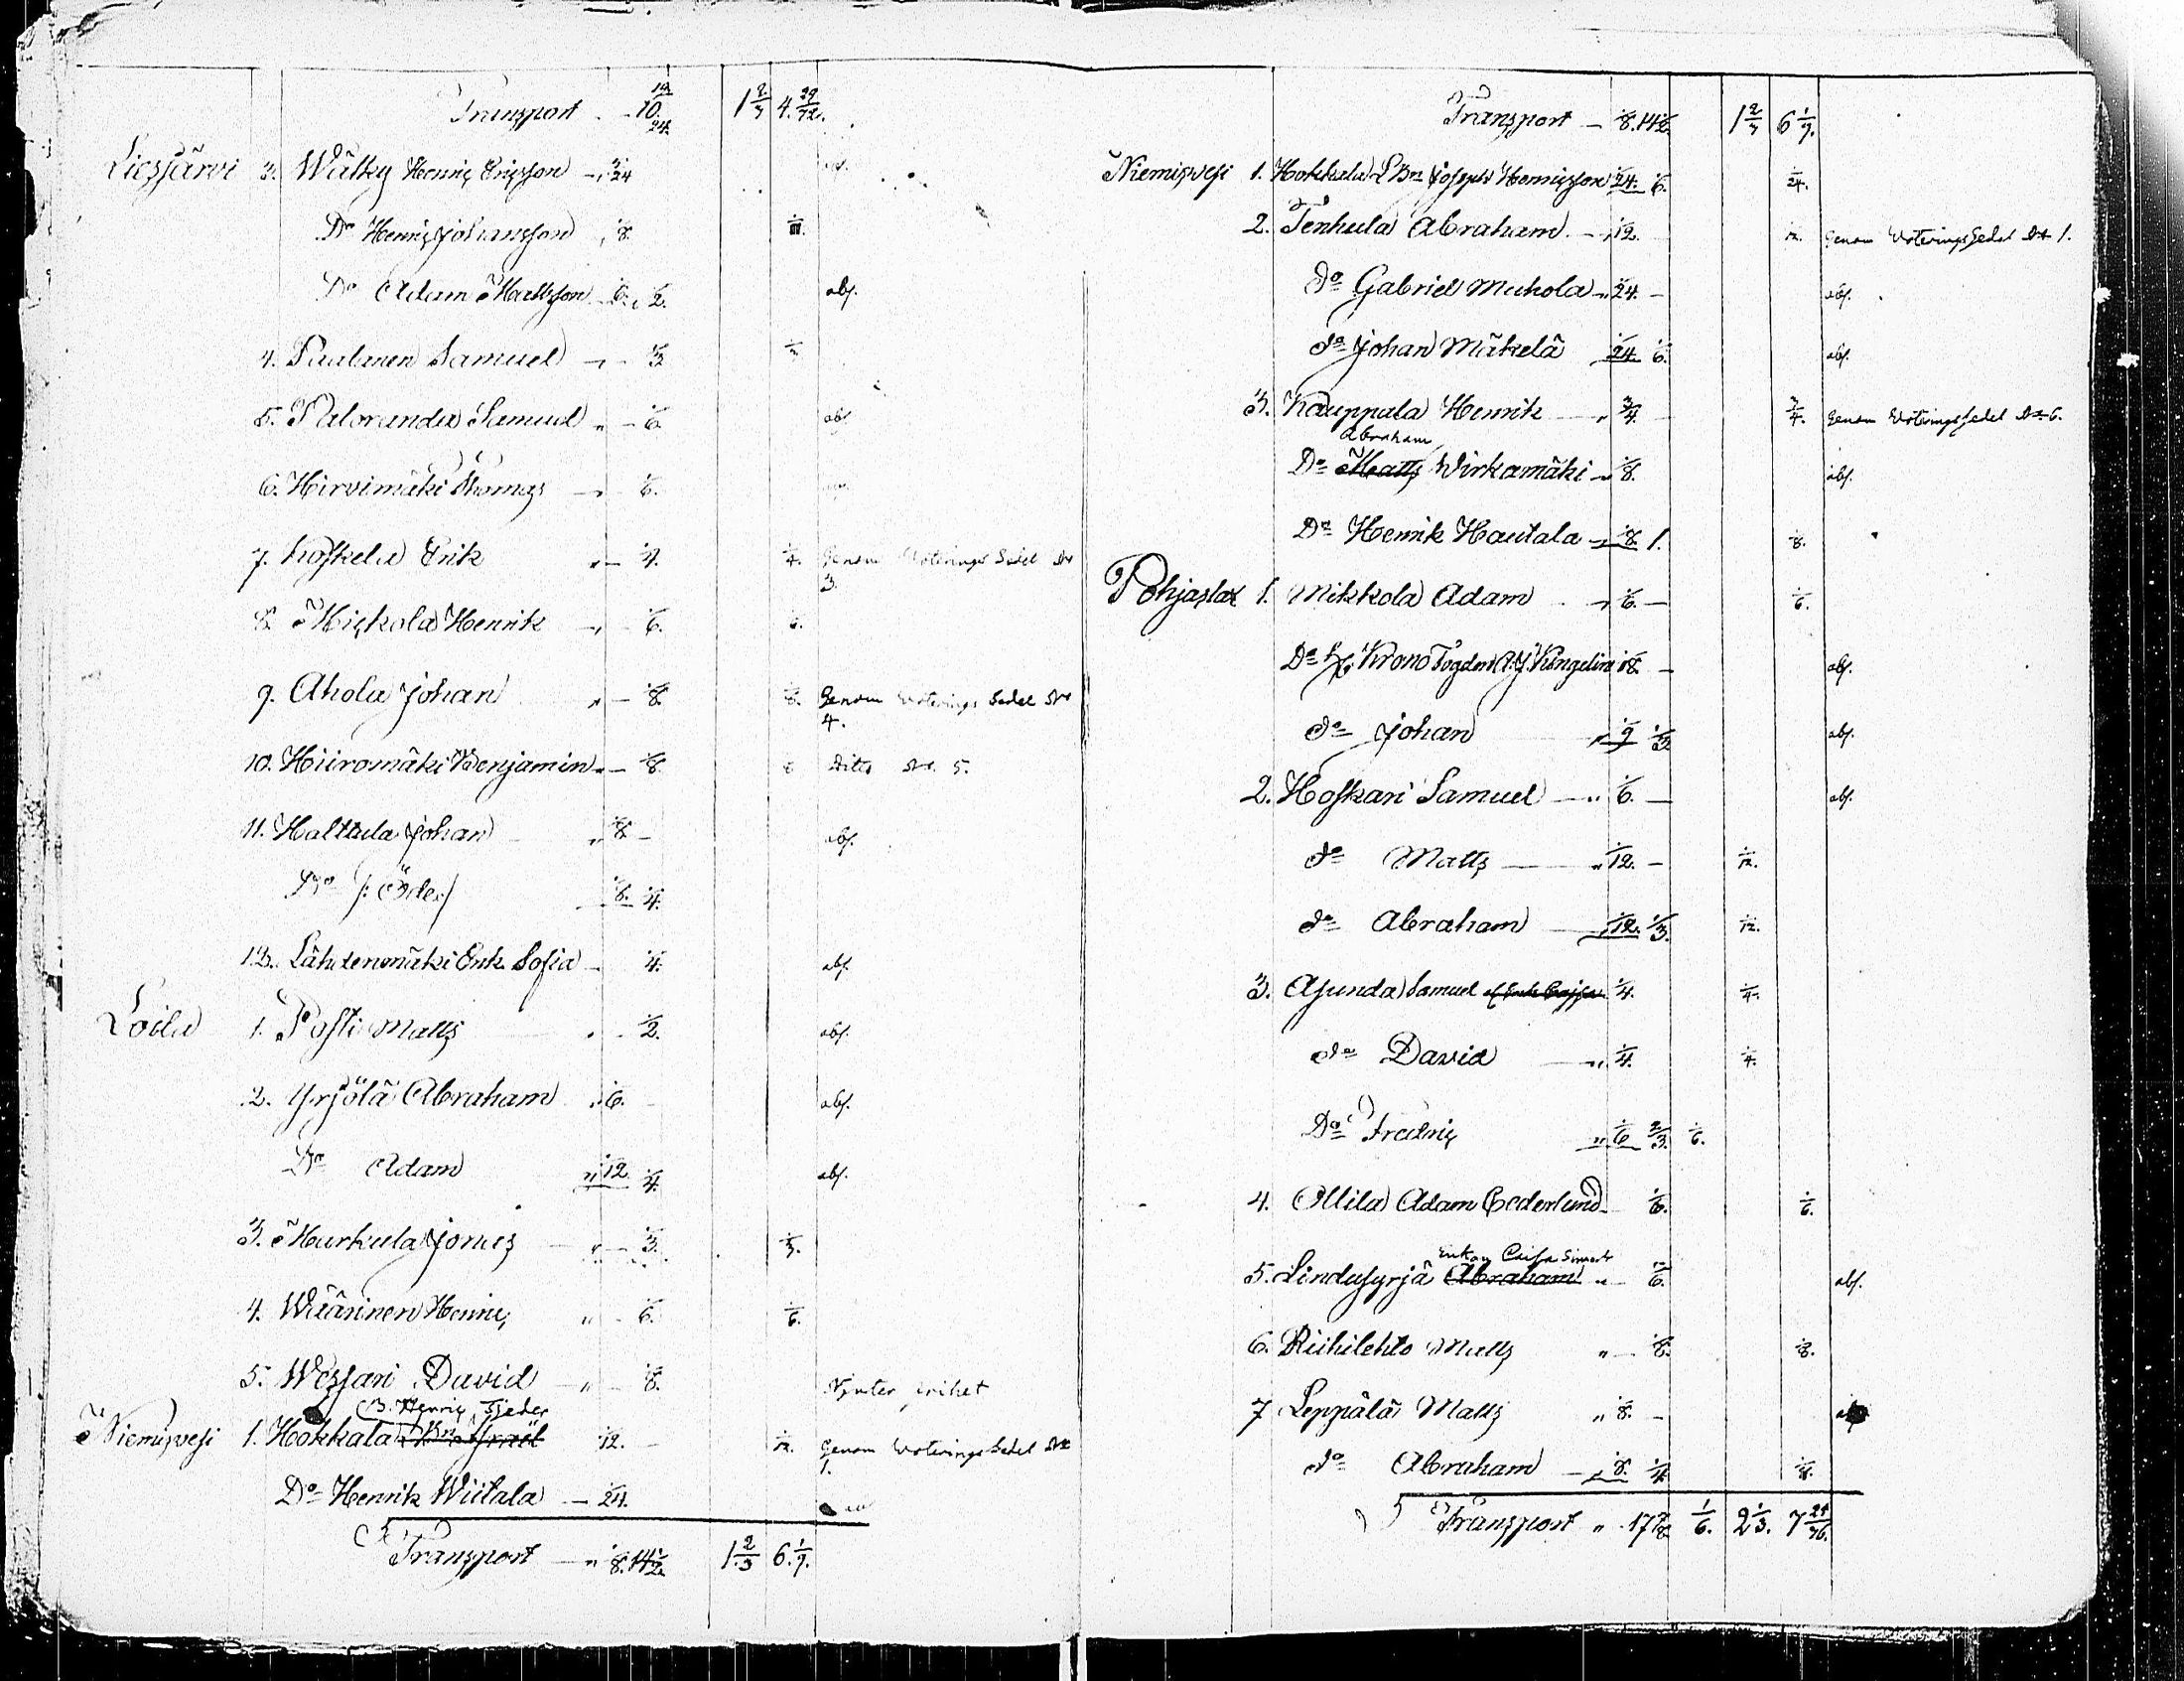 Transport 10 19/24 1 2/3 4 29/72
Liesjärvi 3. Wälky Henriç Ericsson 3/24 abs.
Do Henriç Johansson 1/8
Do Adam Mattsson 1/6. 1/2. abs.
4. Paalanen Samuel 1/3
5. Paloranda Samuel 1/6 abs.
6. Hirvimäki Thomas 1/6.
7. Koskela Erik 1/4. 1/4. Genom Voterings Sedel No 3.
8. Miekola Henrik 1/6. 6.
9. Ahola Johan 1/8 1/8. Genom Voterings Sedel No 4.
10. Hiiromäki Benjamin 1/8. 8 Dito No. 5.
11. Halttula Johan 1/8 abs.
Do /: Öde:/ 1/8. 1/4.
13. Lähdenmäki Enk. Sofia 1/4. abs.
Loila 1. Posti Matts 1/2. abs.
2. Yrjölä Abraham 1/6. abs.
Do Adam 1/12 1/4. abs.
3. Markula Jonas 1/3. 1/3.
4. Wäärinen Henric 1/6. 1/6.
5. Wessari David 1/8. Njuter frihet
B. Henriç Tjeder
Niemisvesi 1. Hokkala Bn Israël 1/12. 1/12. Genom Voterings Sedel No 1.
Do Henrik Wiitala 1/24.
Transport 1/8. 14 1/2 1 2/3 6 1/9.
Transport 1/8. 14 1/2 1 2/3 6 1/9.
Niemisvesi 1. Hokkala LBn Joseph Henricsson 1/24. 1/6. 1/24.
2. Tenhula Abraham 1/12. 1/12. Genom Voterings Sedel No 1.
do Gabriel Muhola 1/24. abs.
do Johan Mäkelä 1/24. 1/6. abs.
3. Kauppala Henrik 3/4. 3/4. Genom Voterings Sedel No 6.
Abraham
Do Matts Wirkamäki 1/8. abs.
Do Henrik Hautala 1/8. 1. 1/8.
Pohjaslax 1. Mikkola Adam 1/6. 1/6.
Do Krono Fogden A.J. Kongelin 1/18. abs.
do Johan 1/9 1/3 abs.
2. Hoskari Samuel 1/6. abs.
do Matts 1/12. 1/12.
do Abraham 1/12. 1/3. 1/12.
3. Asunda Samuel 1/4. 1/4.
do David 1/4. 1/4.
Do Fredriç 1/6 2/3. 1/6.
4. Ollila Adam Cederlund 1/6. 1/6.
Enkan Caisa Simonts
5. Lindusyrjä Abraham 1/6. abs.
6. Riihilehto Matts 1/8. 1/8.
7 Leppälä Matts 1/8.
do Abraham 1/8. 1/4 1/8.
Transport 17 7/8 1/6. 2 1/3. 7